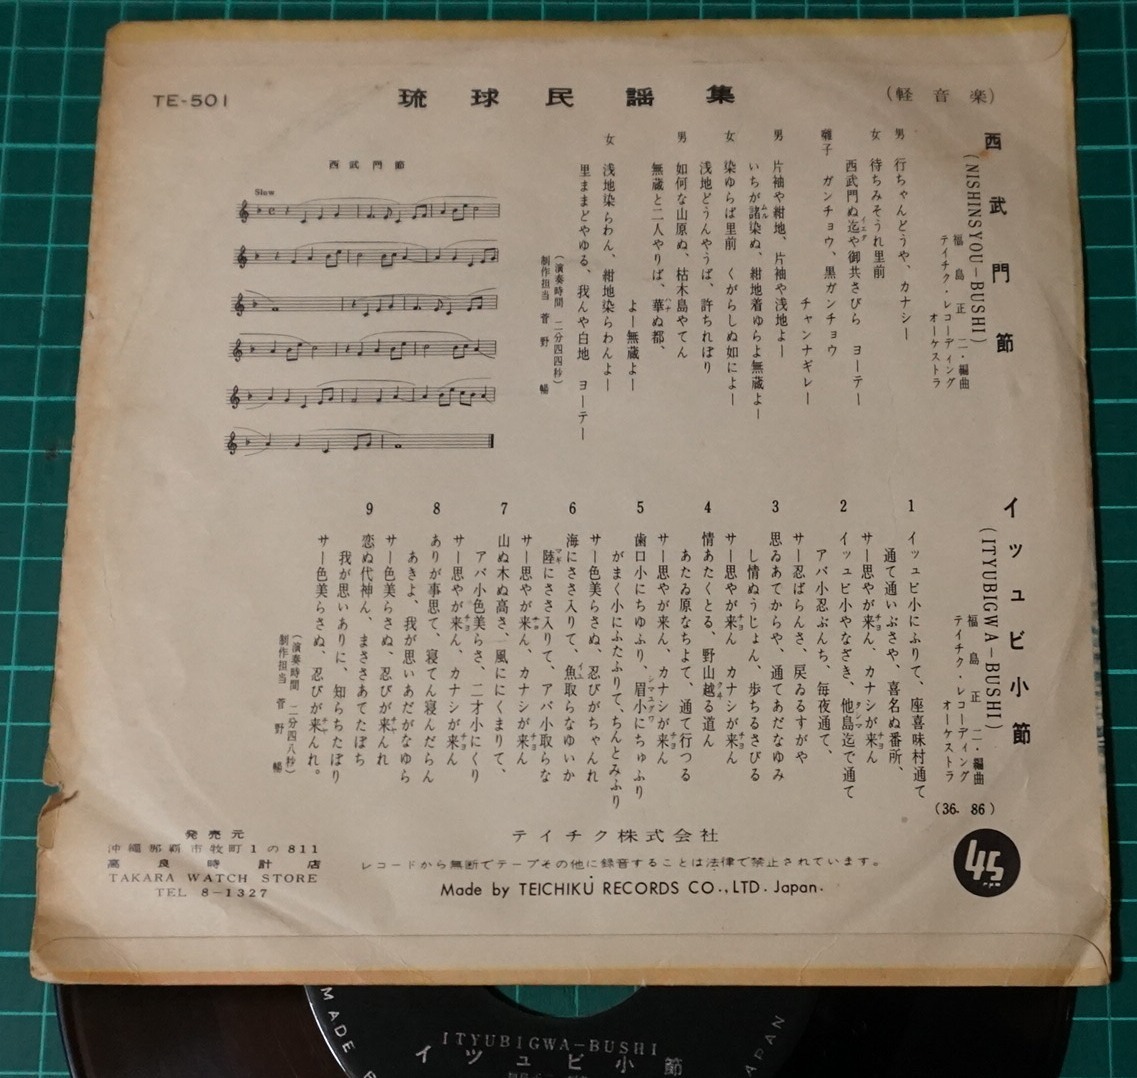 TE-501
琉球民謡集
(軽音楽)
西武門節
(NISHINSYOU-BUSHI)
福島正二・編曲
テイチク・レコーディング
オーケストラ
男 行ちゃんどうや、カナシー
女 待ちみそうれ里前
西武門ぬ迄や御共さびら ヨーテー
囃子 ガンチョウ、黒ガンチョウ
チャンナギレー
男 片袖や紺地、片袖や浅地よー
いちが諸染ぬ、紺地着ゆらよ無蔵よー
女 染ゆらば里前 くがらしぬ如によー
浅地どうんやうば、許ちれぼり
男 如何な山原ぬ、枯木島やてん
無蔵と二人やりば、華ぬ都、
よー無蔵よー
女 浅地染らわん、紺地染らわんよー
里ままどやゆる、我んや白地 ヨーテー
(演奏時間 二分四四秒)
制作担当 菅野 暢
西武門節
Slow
イッュビ小節
(ITYUBIGWA-BUSHI)
福島正二・編曲
テイチク・レコーディング
オーケストラ
(36. 86)
1 イッュビ小にふりて、座喜味村通て
通て通いぶさや、喜名ぬ番所、
サー思やが来ん、カナシが来ん
2 イッュビ小やなざき、他島迄で通て
アバ小忍ぶんち、毎夜通て、
サー忍ばらんさ、戻ゐるすがや
3 思ゐあてからや、通てあだなゆみ
し情ぬうじょん、歩ちるさびる
サー思やが来ん、カナシが来ん
4 情あたくとる、野山越る道ん
あたゐ原なちよて、通て行つる
サー思やが来ん、カナシが来ん
5 歯口小にちゆふり、眉小にちゅふり
がまく小にふたふりて、ちんとみふり
サー色美らさぬ、忍びがちゃんれ
6 海にささ入りて、魚取らなゆいか
陸にささ入りて、アバ小取らな
サー思やが来ん、カナシが来ん
7 山ぬ木ぬ高さ、風ににくまりて、
アバ小色美らさ、二才小にくり
サー思やが来ん、カナシが来ん
8 ありが事思て、寝てん寝んだらん
あきよ、我が思いあだがなゆら
サー色美らさぬ、忍びが来んれ
9 恋ぬ代神ん、まささあてたぼち
我が思いありに、知らちたぼり
サー色美らさぬ、忍びが来んれ。
(演奏時間 二分四八秒)
制作担当 菅野 暢
発売元
沖縄那覇市牧町1の811
高良時計店
TAKARA WATCH STORE
TEL 8-1327
テイチク株式会社
レコードから無断でテープその他に録音することは法律で禁止されています。
Made by TEICHIKU RECORDS CO.,LTD. Japan.
45
rpm
MADE
ITYUBIGWA-BUSHI
イッュビ小節
JAPAN